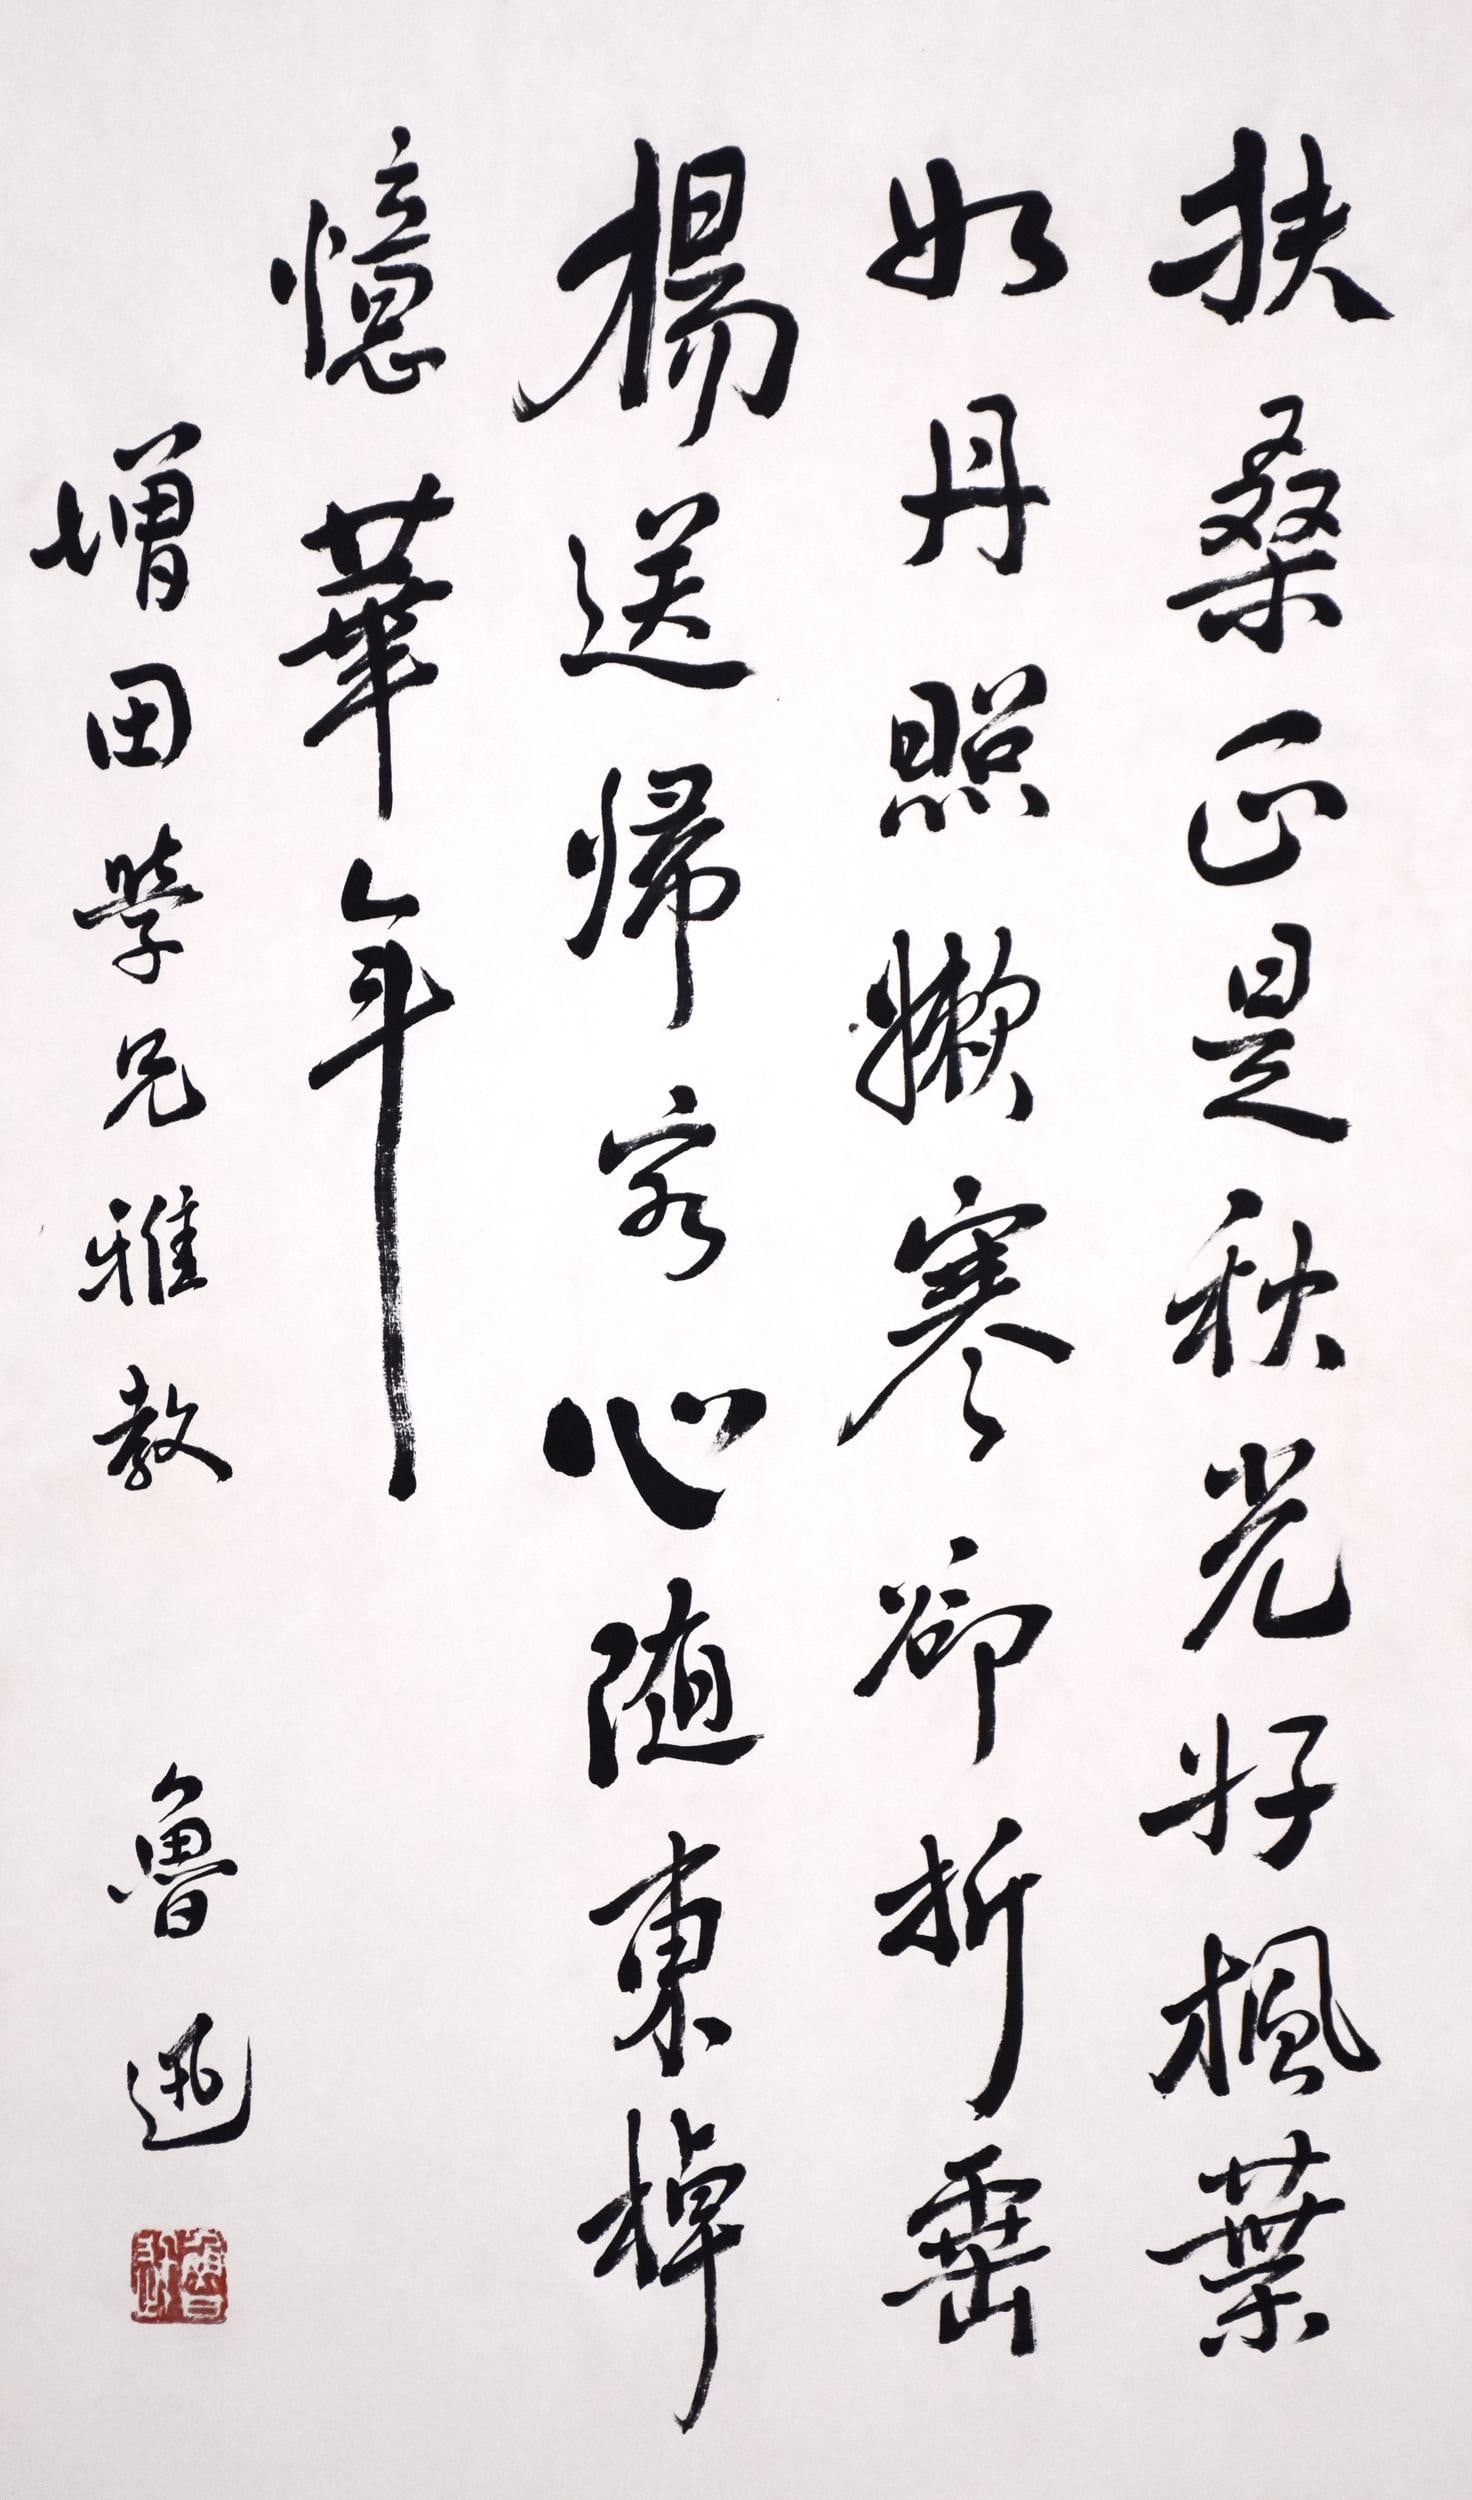 扶桑正是秋光好楓葉
如丹照嫩寒卻折垂
楊送帰客心随東棹
憶華年
增田學兄雅教 魯迅
魯迅